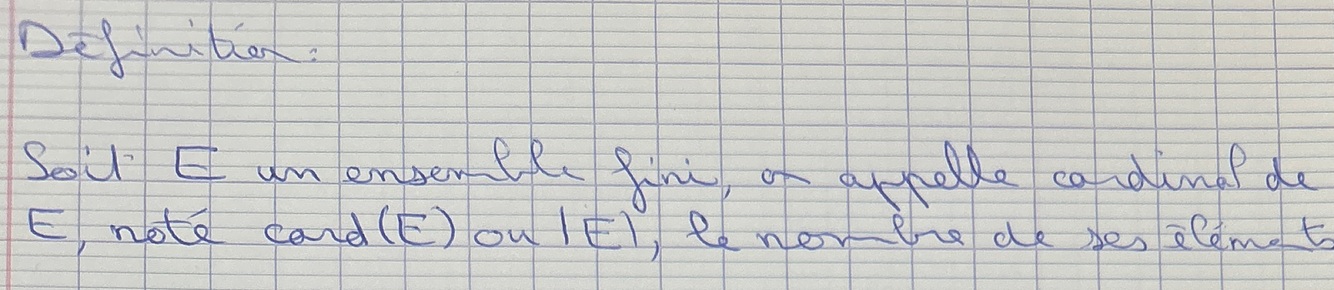 Définition :
Soit E un ensemble fini, on appelle cardinal de
E, noté card(E) ou |E|, le nombre de ses éléments